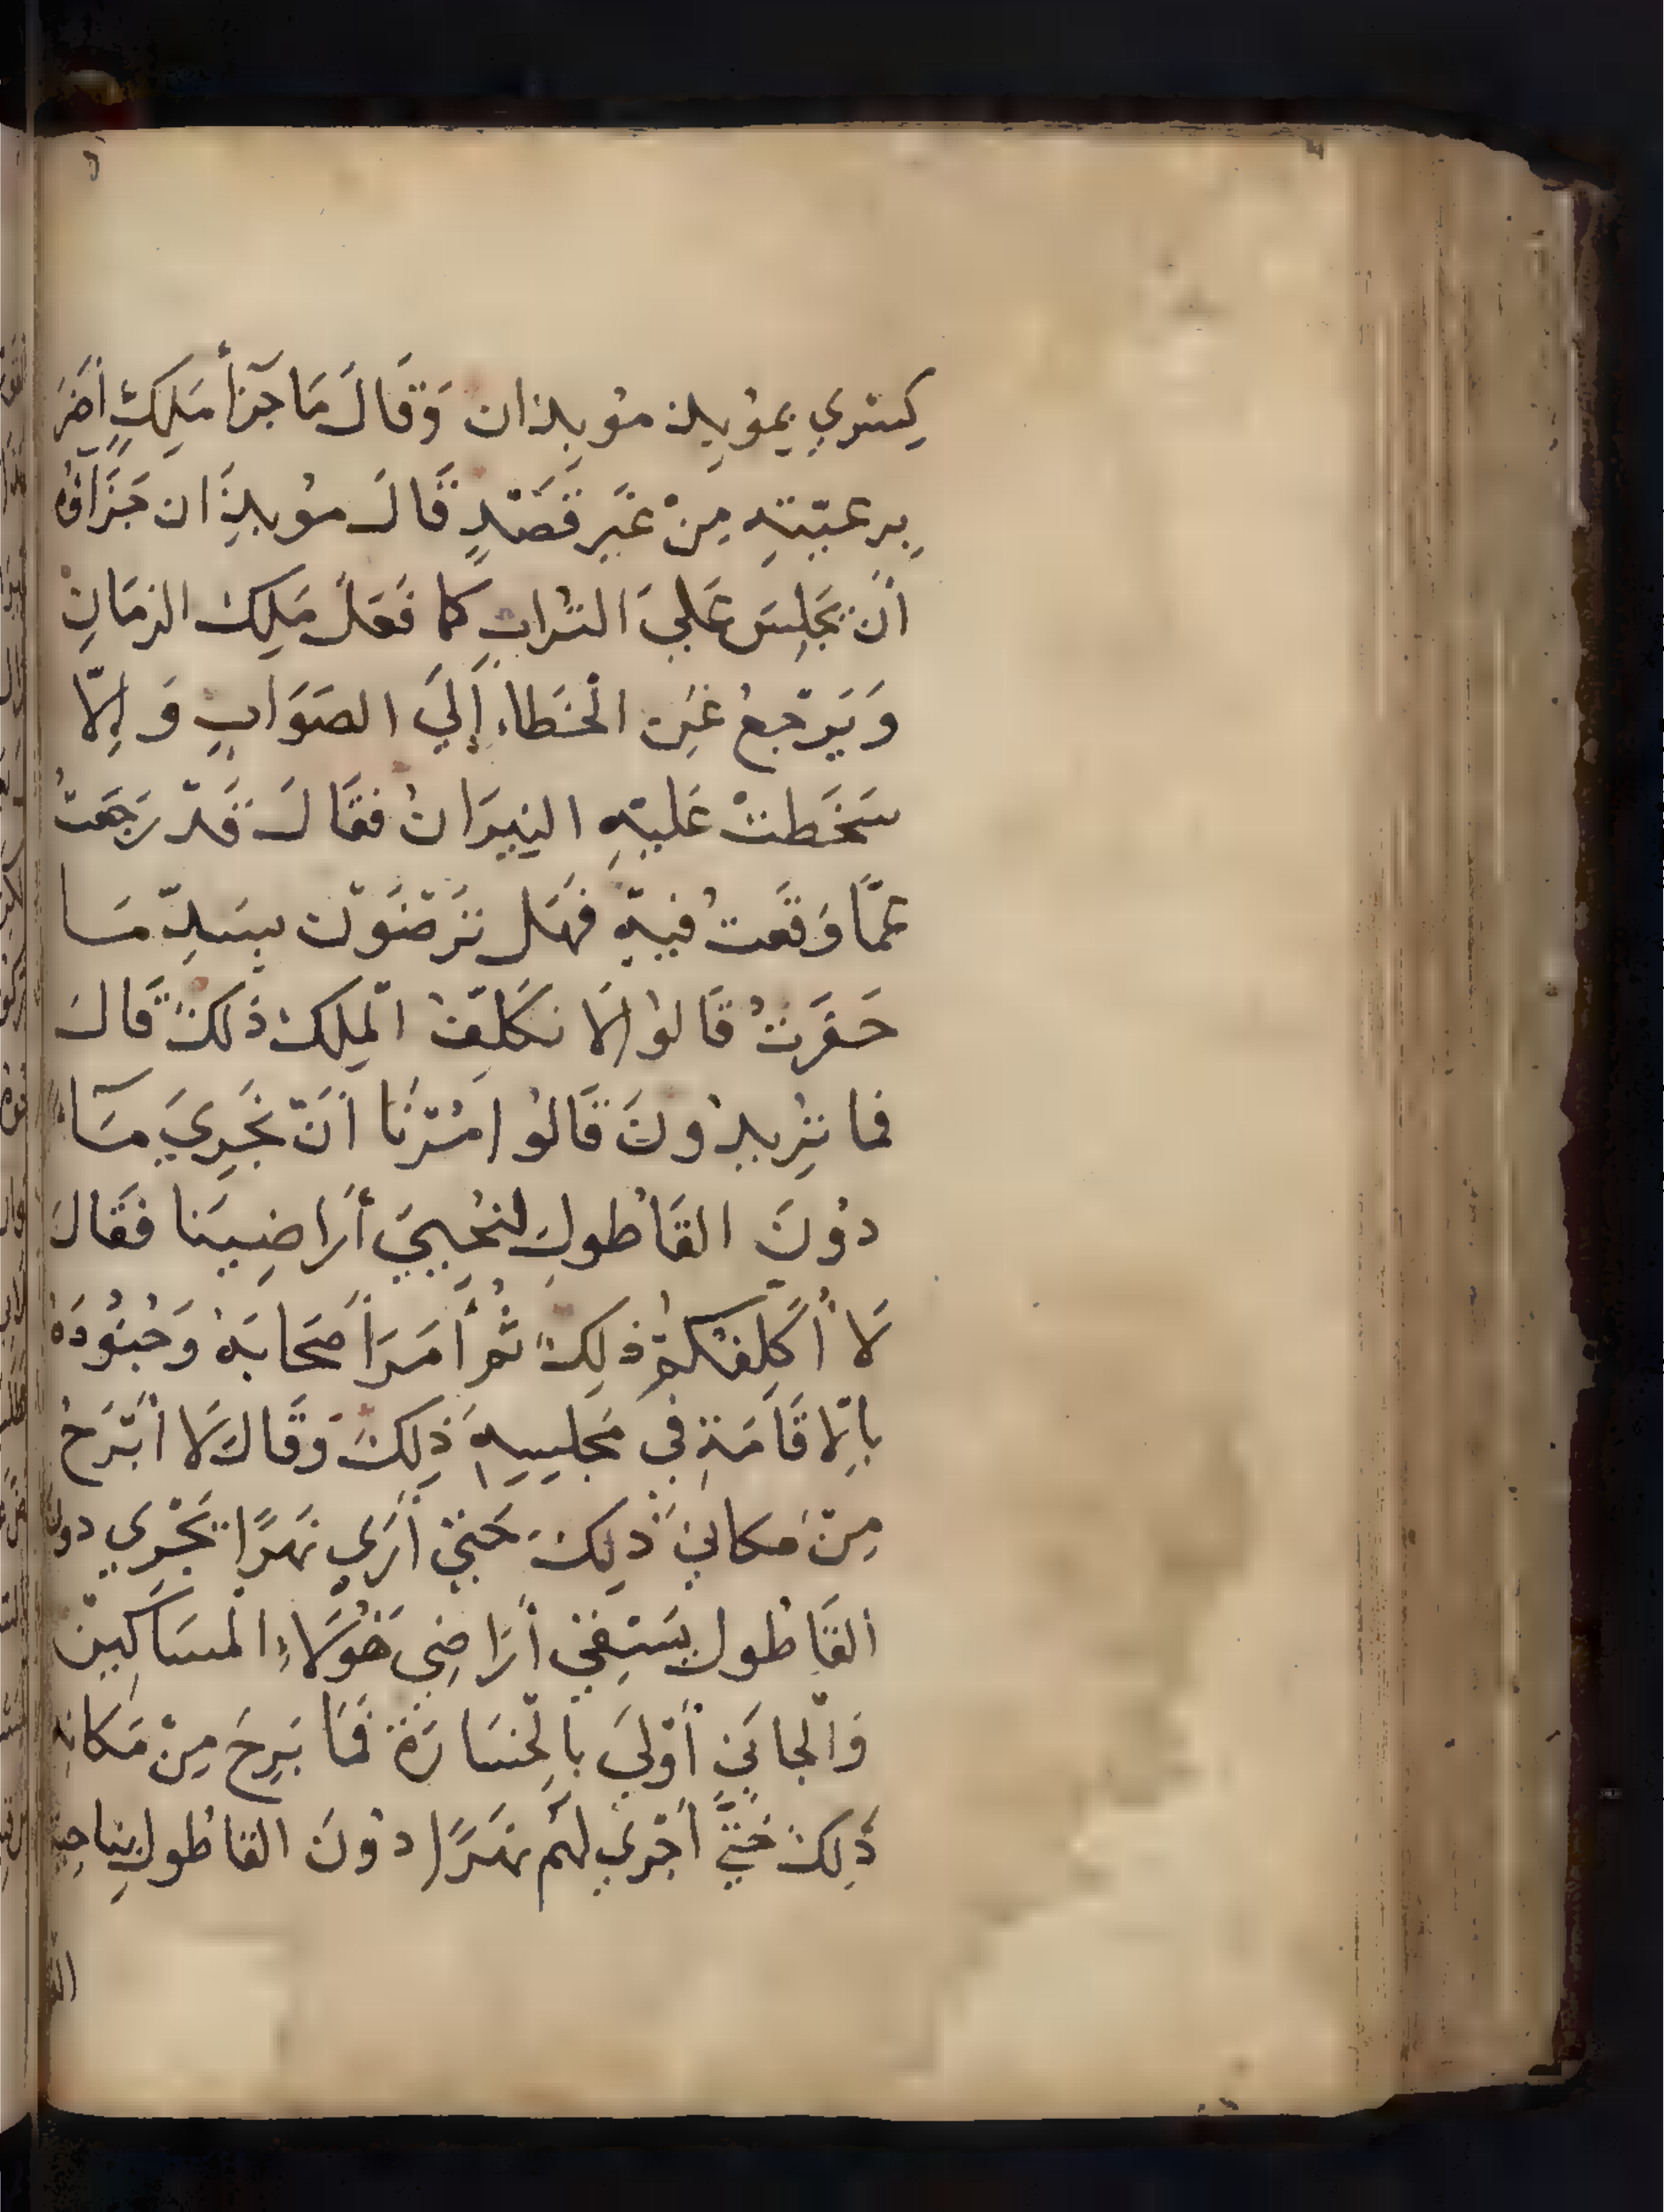 كِسْرَي بِمُوبِذ مُوبِذان وَقَالَ مَا جَزَأُ مَلِكٍ أَضَرَّ
بِرعيّتِهِ مِنْ غَيْرِ قَصْدٍ قَالَ مُوبِذَان جَزَاؤُهُ
أَن يَجْلِسَ عَلَيَ التُرابِ كما فَعَلَ مَلِكُ الزمَانِ
وَيَرْجِعُ عَنِ الْخَطاءِ إِلَيَ الصَوَابِ وَإِلّا
سَخَطتْ عَليْهِ النِيرَانُ فقَالَ قَدْ رَجَعتُ
عَمَّا وَقَعتُ فيهِ فَهَل تَرْضَوْن بِسَدِّ مَا
حَفَرتُ قَالُوا لَا نكَلِّفُ الْمَلِكَ ذَلكَ قَالَ
فما تُرِيدُونَ قَالُوا امُرْنَا أَنْ نُجْرِيَ مَآءً
دُونَ القَاطُولِ لنُحْيِيَ أَرَاضِينَا فَقَالَ
لَا أُكَلِّفُكُمْ ذلِكَ ثُمَّ أَمَرَ أَصْحَابَهُ وَجُنُودَهُ
بالِاقَامَةِ في مَجْلِسِهِ ذَلِكَ وَقَالَ لَا أَبْرَحُ
مِنْ مَكاني ذَلِكَ حَتيّ أَرَي نَهرًا يَجْرِي دون
القَاطُول يَسْقِي أَرَاضِي هَؤُلَاءِ الْمَسَاكِينْ
وَالْجانيّ أَوْلَي بالْخسَارَة فَمَا بَرِحَ مِنْ مَكانِهِ
ذَلِكَ حَتيَّ أَجْرَي لَهُم نَهَرًا دُونَ القاطُول بِناحِيَةِ